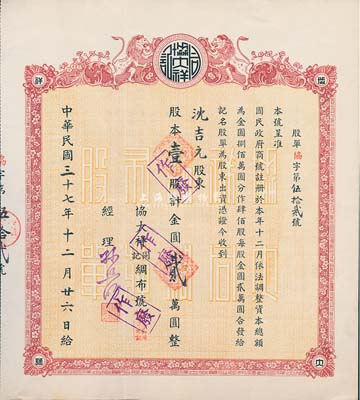 股單協字第伍拾貳號
本號呈准
國民政府商號註册於本年十二月依法調整資本總額
為金圓捌佰萬圓分作肆佰股每股金圓貳萬圓合發給
記名股單為股東出資憑證今收到
沈吉元股東
股本壹股計金圓貳萬圓整
協大祥 記綢布號
經理
中華民國三十七年十二月廿六日給
作廢
作廢
作廢
協大祥
字第伍拾貳號